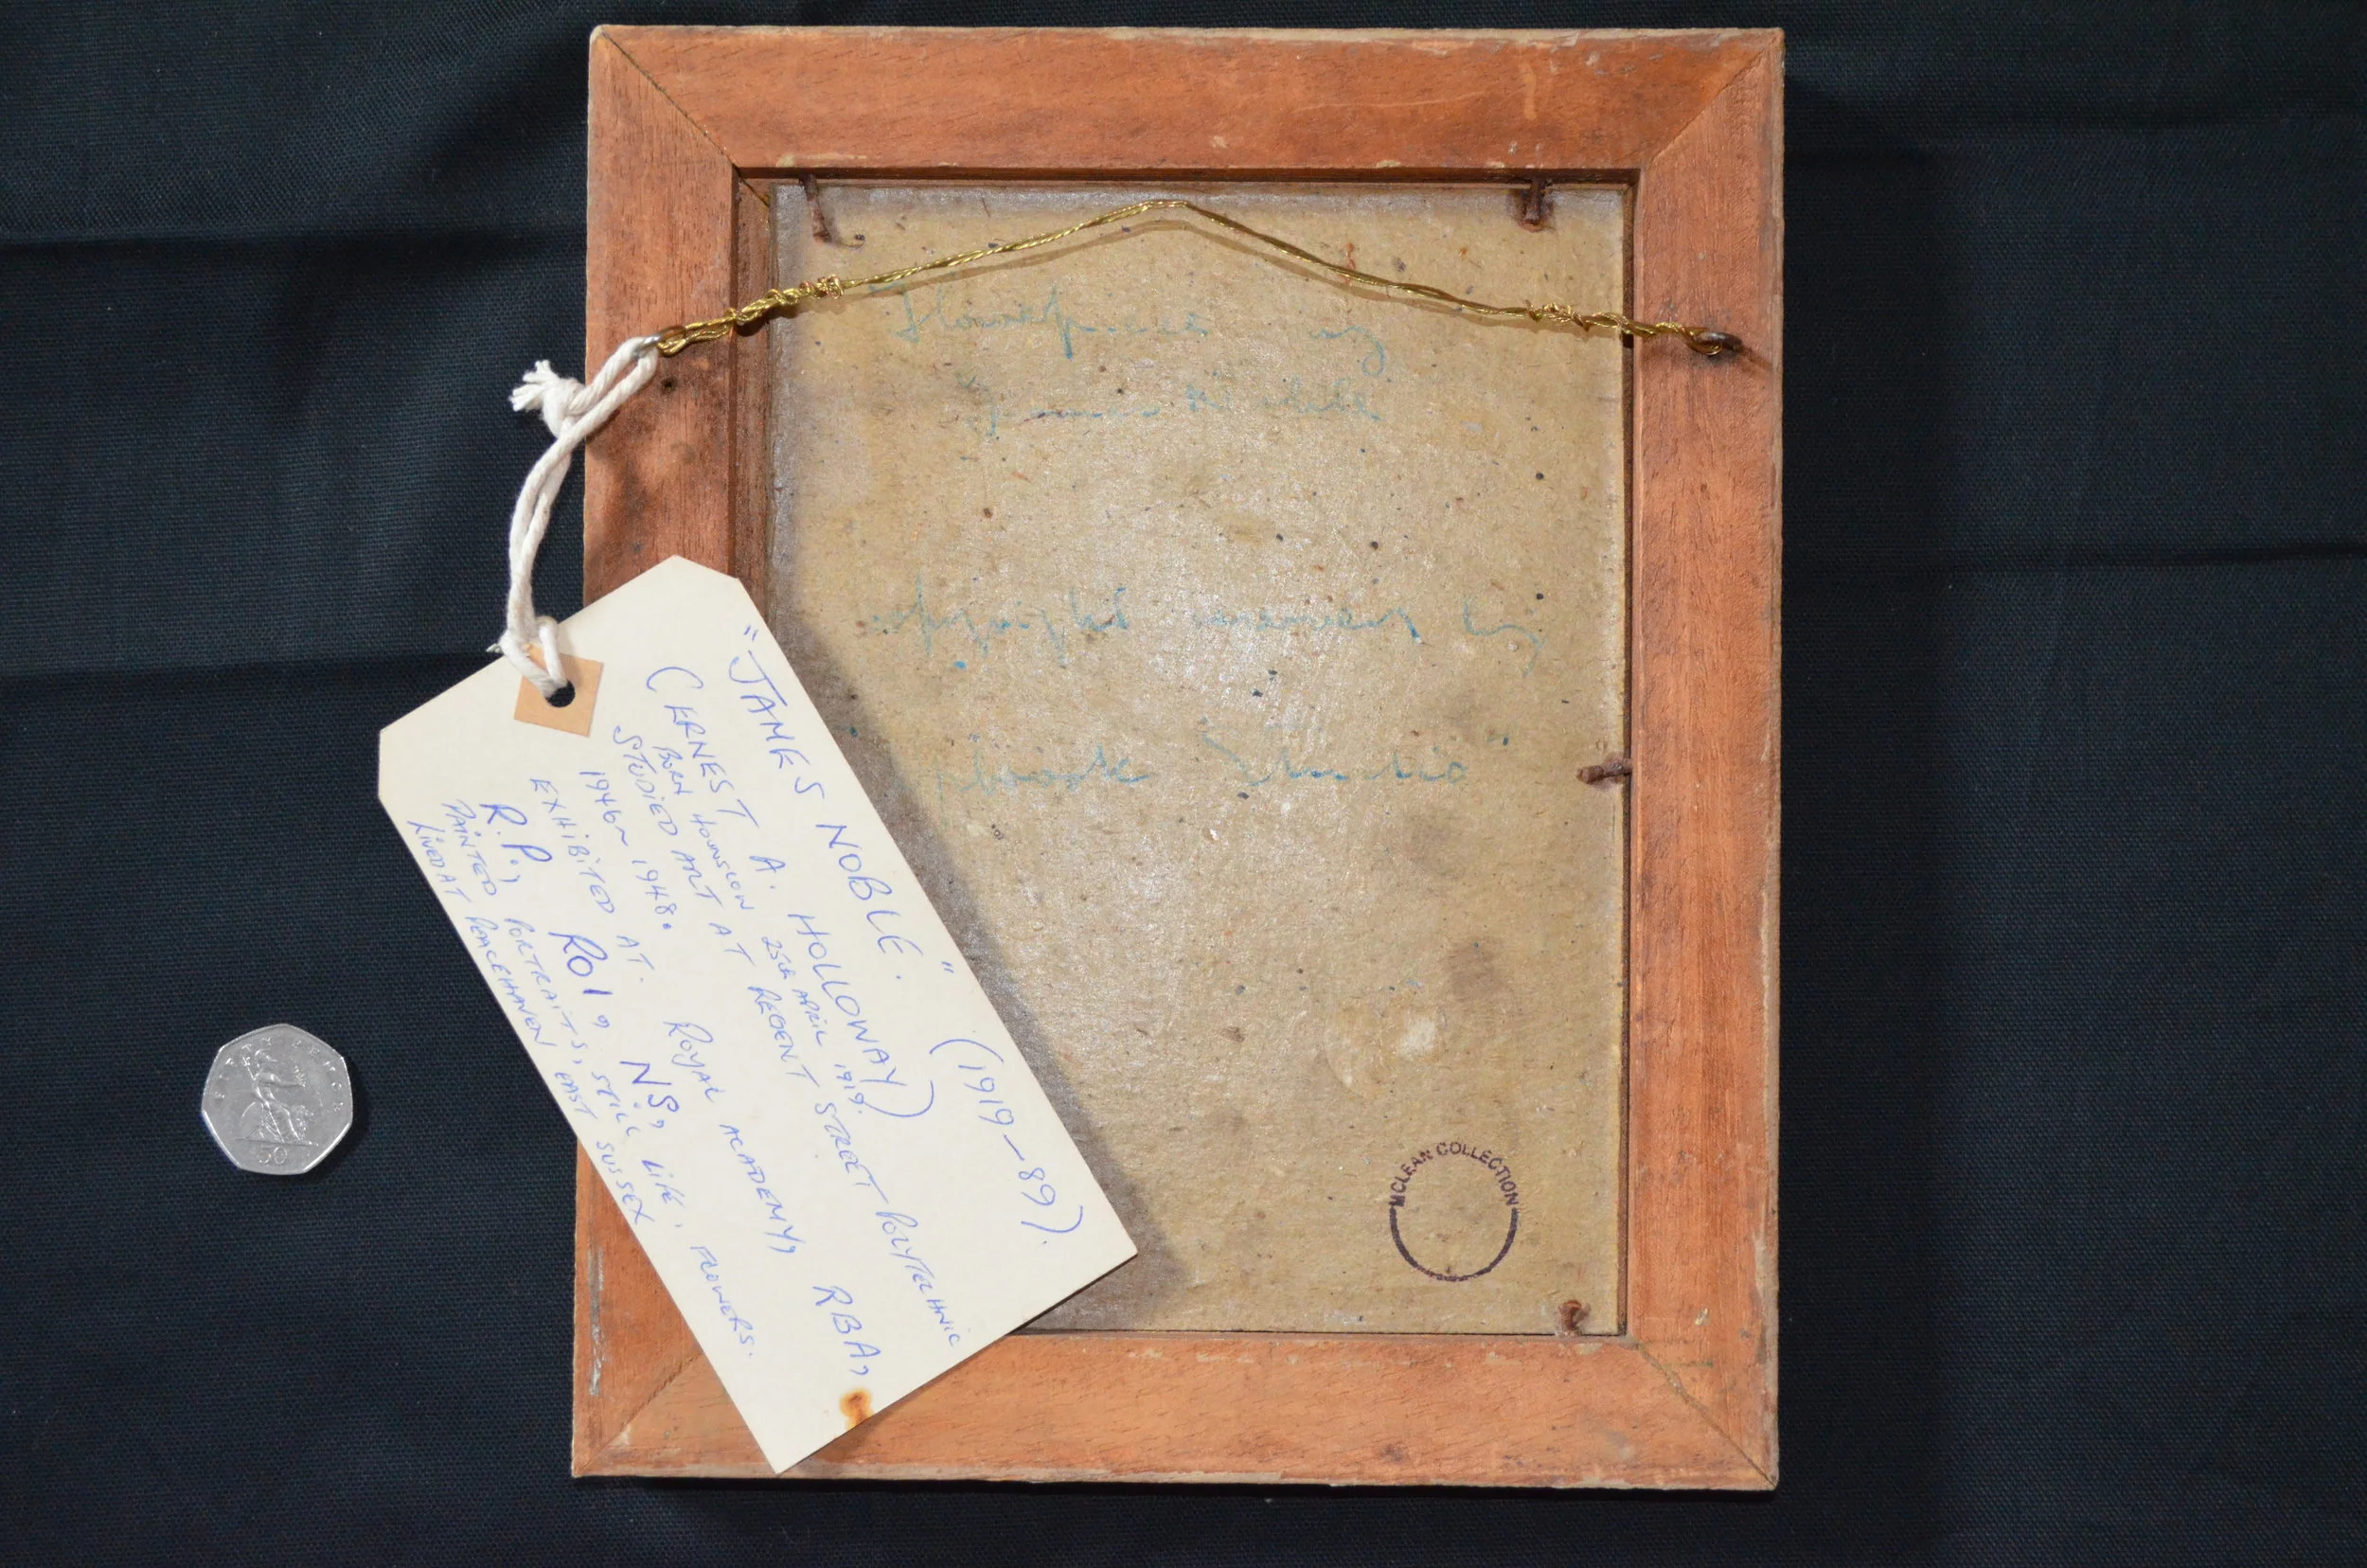 "JAMES NOBLE." (1919-89).
(ERNEST A. HOLLOWAY)
BORN HOUNSLOW 25th APRIL 1919.
STUDIED ART AT REGENT STREET POLYTECHNIC
1946~1948.
EXHIBITED AT. ROYAL ACADEMY, RBA,
R.P., ROI, NS,
PAINTED PORTRAITS, STILL LIFE, FLOWERS.
LIVED AT PEACEHAVEN EAST SUSSEX
Flowerpiece by
James Noble
copyright reserved by
Studio"
MCLEAN COLLECTION
50